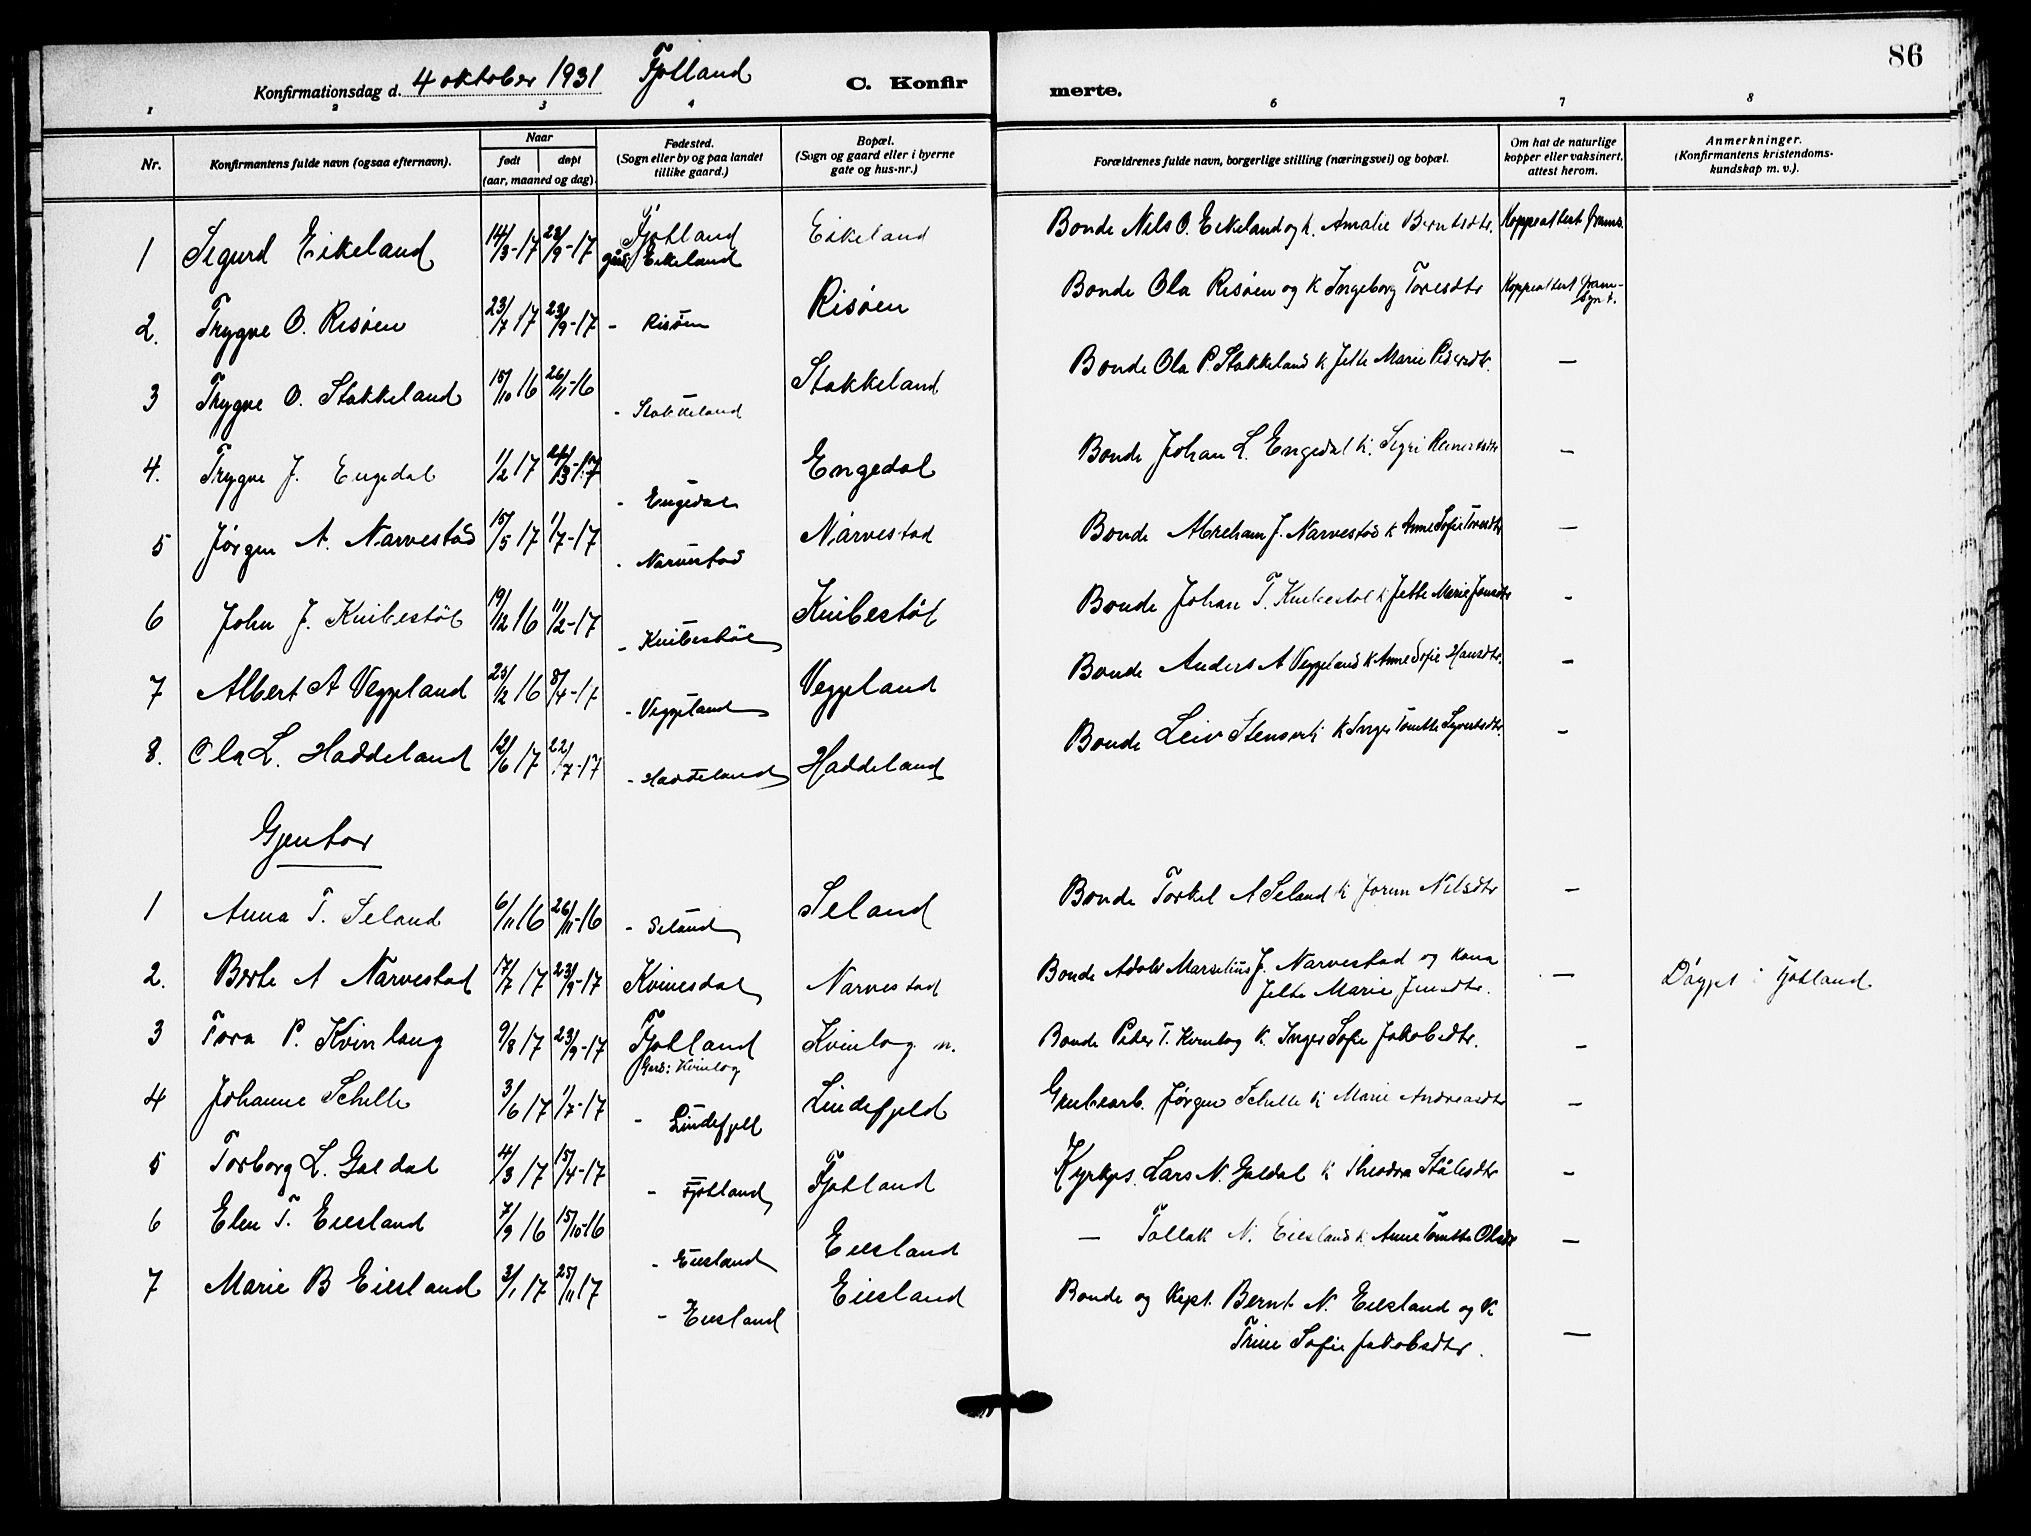 86
Konfirmationsdag d. 4 oktober 1931 Fjotland C. Konfir merte.
1 2 3 4 6 7 8
Nr. Konfirmantens fulde navn (ogsaa efternavn). Naar født døpt (aar, maaned og dag). Fødested. (Sogn eller by og paa landet tillike gaard.) Bopæl. (Sogn og gaard eller i byerne gate og hus-nr.) Forældrenes fulde navn, borgerlige stilling (næringsvei) og bopæl. Om hat de naturlige kopper eller vaksinert, attest herom. Anmerkninger. (Konfirmantens kristendoms-kundskap m. v.).
1 Sigurd Eikeland 14/3-17 23/9-17 Fjotland Eikeland Eikeland Bonde Nils O. Eikeland og k. Amalie Berntsdtr. Koppeattest frams.
2. Trygve O. Risøen 23/7 17 23/9-17 - Risøen Risøen Bonde Ola Risøen og k Ingeborg Toresdtr Koppeattest fram-synt.
3 Trygve O. Stakkeland 15/10 16 26/11-16 - Stakkeland Stakkeland Bonde Ola P. Stakkeland k Jette Marie Pedersdtr. —
4. Trygve J. Engedal 1/2 17 - Engedal Engedal Bonde Johan L. Engedal k. Sigri Reinertsdtr —
5 Jørgen A. Narvestad 15/5 17 1/7-17 - Narvestad Narvestad Bonde Abreham J. Narvestad k Anne Sofie Toresdtr —
6 John J. Knibestøl 19/12 16 11/2-17 - Knibestøl Knibestøl Bonde Johan T. Knibestøl k Jette Marie Jonsdtr -
7 Albert A Veggeland 25/2 16 8/4-17 - Veggeland Veggeland Bonde Anders A Veggeland k Anne Sofie Hansdtr. —
8. Ola L. Haddeland 12/6 17 22/7-17 - Haddeland Haddeland Bonde Leiv k Inger Tomette Syvertsdtr. -
Gjentor
1 Anna T. Seland 6/11 16 26/11-16 - Seland Seland Bonde Torkel A Seland k Jorun Nilsdtr —
2. Berte A Narvestad 17/7 17 23/9-17 Kvinesdal Narvestad Bonde Adolv Marselius J. Narvestad og kona — Døypt i Fjotland
Jette Marie Jensdtr.
3 Tora P. Kvinlaug 9/8 17 23/9-17 Fjotland Kvinlog n. Bonde Peder T. Kvinlog k. Inger Sofie Jakobsdtr. —
Gard: Kvinlog
4 Johanne Schelle 3/6 17 1/7-17 - Lindefjeld Lindefjeld Grubearb. Jørgen Schelle k Marie Andreasdtr —
5 Torborg L. Galdal 4/3 17 15/4-17 - Fjotland Fjotland Kyrkjes. Lars N. Galdal k Theodora Ståledtr —
6 Elen T. Eiesland 7/9 16 15/10-16 - Eiesland Eiesland — Tollak N. Eiesland k. Anne Tomette Olsdtr —
7 Marie B Eiesland 3/1 17 25/11 17 - Eiesland Eiesland Bonde og Kept. Bernt N. Eiesland og k
Trine Sofie Jakobsdtr. —